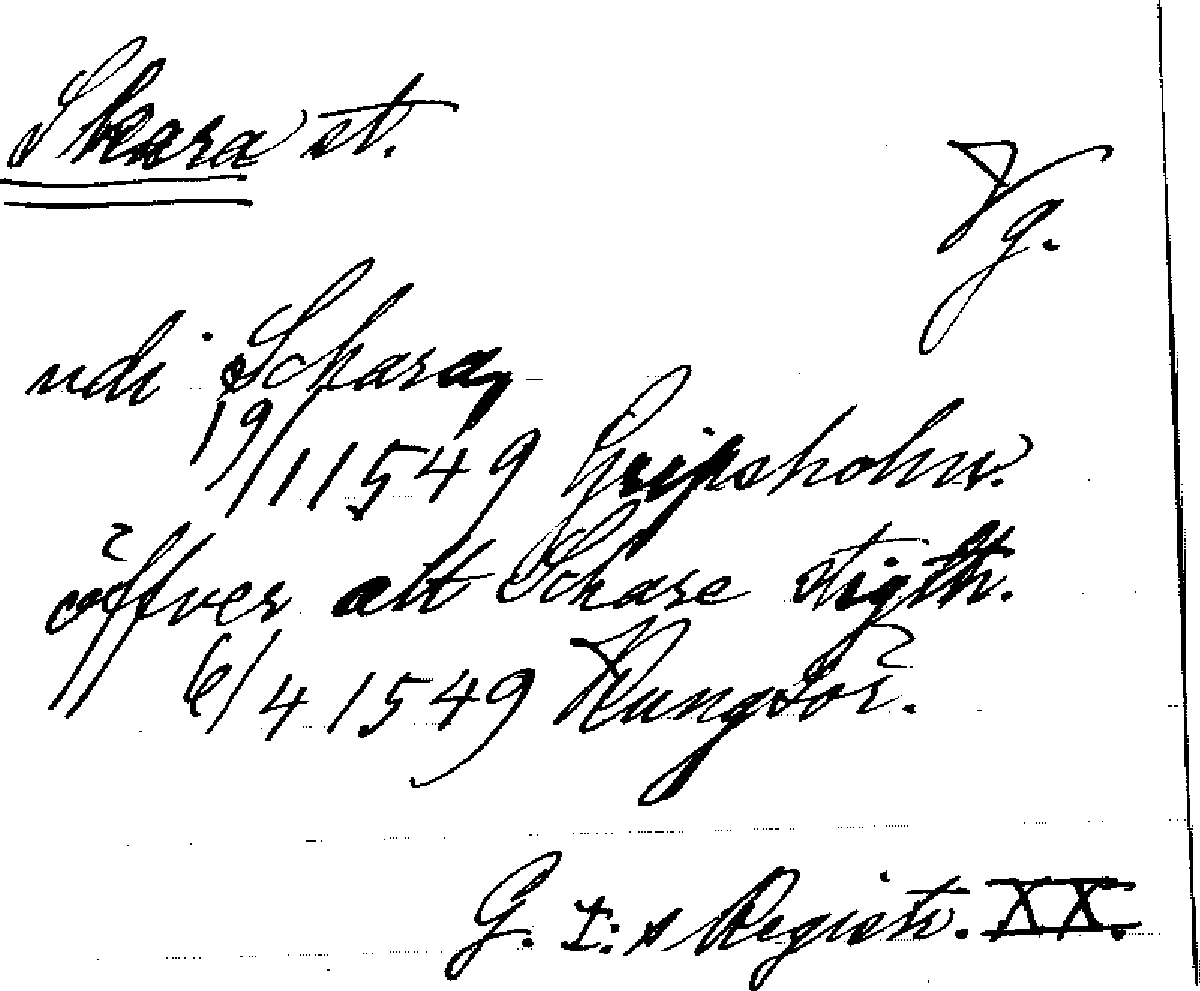 Skara st.
Vg.
udi Schara,
19/1 1549 Gripsholm.
öffver alt Schare stigtt.
6/4 1549 Kungsör.
G. I:s Registr. XX.